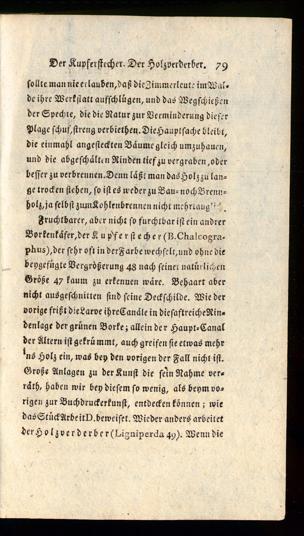 Der Kupferstecher. Der Holzverderber. 79
sollte man nie erlauben, daß die Zimmerleute im Wal-
de ihre Werkstatt aufschlügen, und das Wegschießen
der Spechte, die die Natur zur Verminderung dieser
Plage schuf, streng verbiethen. Die Hauptsache bleibt,
die einmahl angesteckten Bäume gleich umzuhauen,
und die abgeschälten Rinden tief zu vergraben, oder
besser zu verbrennen. Denn läßt man das Holz zu lan-
ge trocken stehen, so ist es weder zu Bau- noch Brenn-
holz, ja selbst zum Kohlenbrennen nicht mehr tauglich.
Fruchtbarer, aber nicht so furchtbar ist ein andrer
Borkenkäfer, der Kupferstecher (B. Chalcogra-
phus), der sehr oft in der Farbe wechselt, und ohne die
beygefügte Vergrößerung 48 nach seiner natürlichen
Größe 47 kaum zu erkennen wäre. Behaart aber
nicht ausgeschnitten sind seine Deckschilde. Wie der
vorige frißt die Larve ihre Canäle in die saftreiche Rin-
denlage der grünen Borke; allein der Haupt-Canal
der Altern ist gekrümmt, auch greifen sie etwas mehr
ins Holz ein, was bey den vorigen der Fall nicht ist.
Große Anlagen zu der Kunst die sein Nahme ver-
räth, haben wir bey diesem so wenig, als beym vo-
rigen zur Buchdruckerkunst, entdecken können; wie
das Stück Arbeit D. beweiset. Wieder anders arbeitet
der Holzverderber (Ligniperda 49). Wenn die